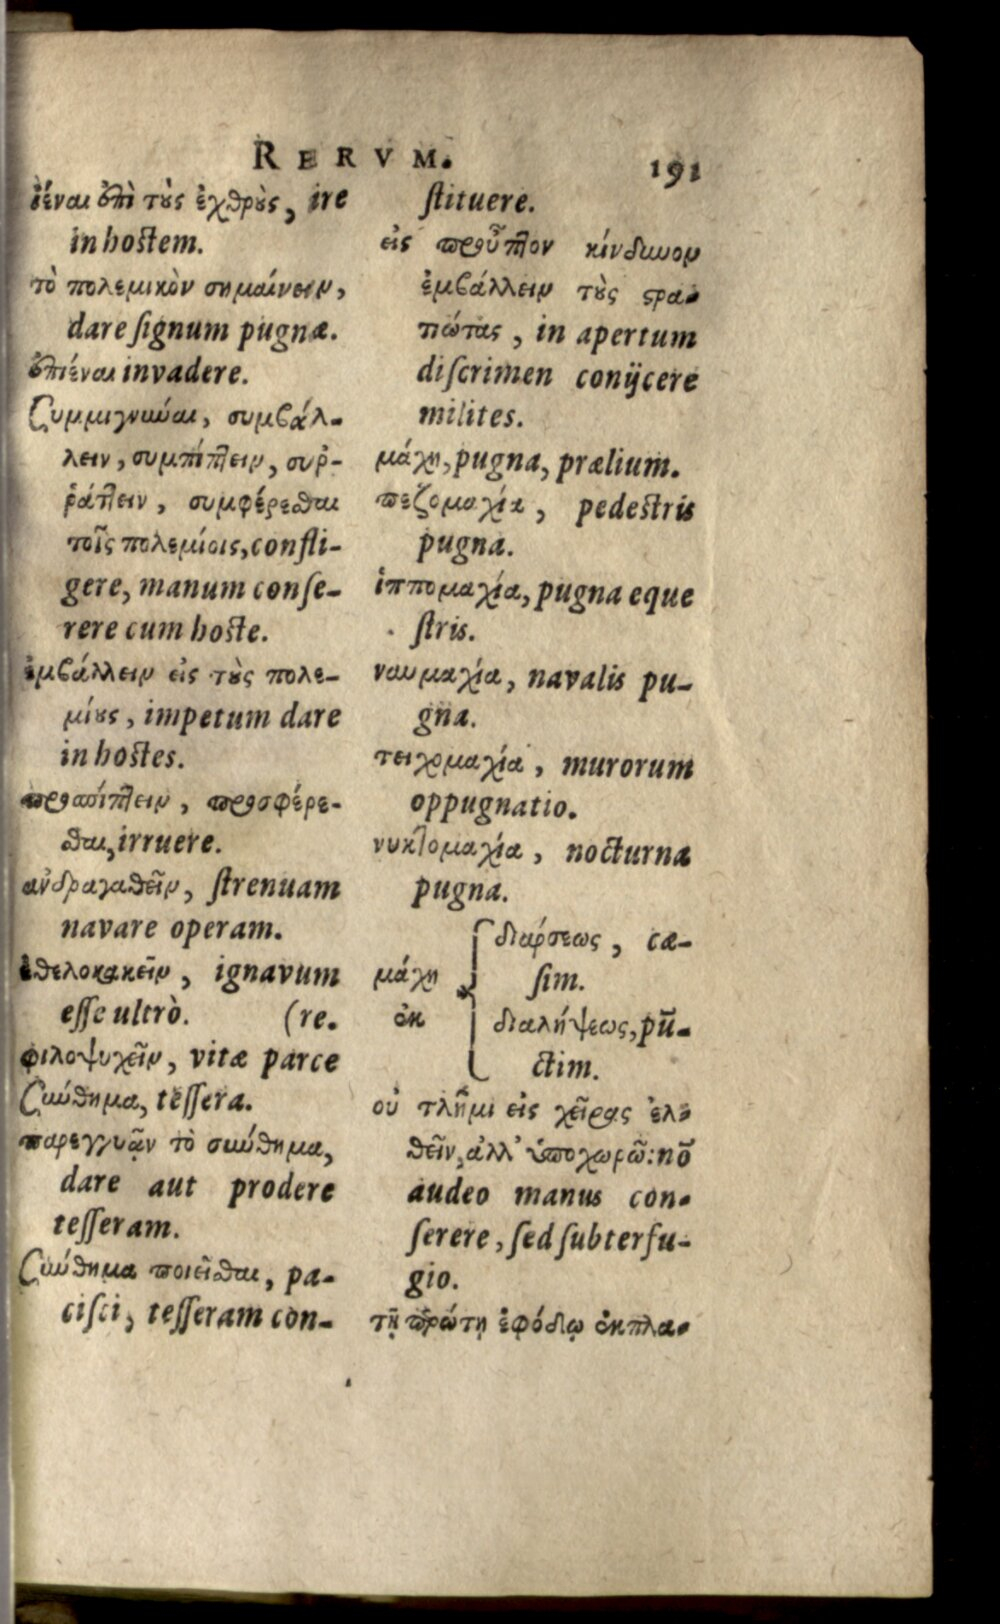 RERVM. 191
ἰέναι ἐπὶ τοὺς ἐχθροὺς, ire
in hostem.
τὸ πολεμικὸν σημαίνειν,
dare signum pugnæ.
ἐπιέναι invadere.
Συμμιγνύναι, συμβάλ-
λειν, συμπίπτειν, συῤ-
ῥάπτειν, συμφέρεσθαι
τοῖς πολεμίοις, confli-
gere, manum conse-
rere cum hoste.
ἐμβάλλειν εἰς τοὺς πολε-
μίους, impetum dare
in hostes.
προσπίπτειν, προσφέρε-
σθαι, irruere.
ἀνδραγαθεῖν, strenuam
navare operam.
ἐθελοκακεῖν, ignavum
esse ultrò. (re.
φιλοψυχεῖν, vitæ parce
Σύνθημα, tessera.
παρεγγυᾷν τὸ σύνθημα,
dare aut prodere
tesseram.
Σύνθημα ποιεῖσθαι, pa-
cisci, tesseram con-
stituere.
εἰς προῦπτον κίνδυνον
ἐμβάλλειν τοὺς στρα-
τιώτας, in apertum
discrimen conijcere
milites.
μάχη, pugna, prælium.
πεζομαχία, pedestris
pugna.
ἱππομαχία, pugna eque
stris.
ναυμαχία, navalis pu-
gna.
τειχομαχία, murorum
oppugnatio.
νυκτομαχία, nocturna
pugna.
διαρσεως, cæ-
μάχη sim.
ἐκ διαλήψεως, pū-
ctim.
οὐ τλῆμι εἰς χεῖρας ἐλ-
θεῖν, ἀλλ' ὑποχωρῶ: nō
audeo manus con-
serere, sed subterfu-
gio.
τῇ πρώτῃ ἐφόδῳ ἐκπλα-